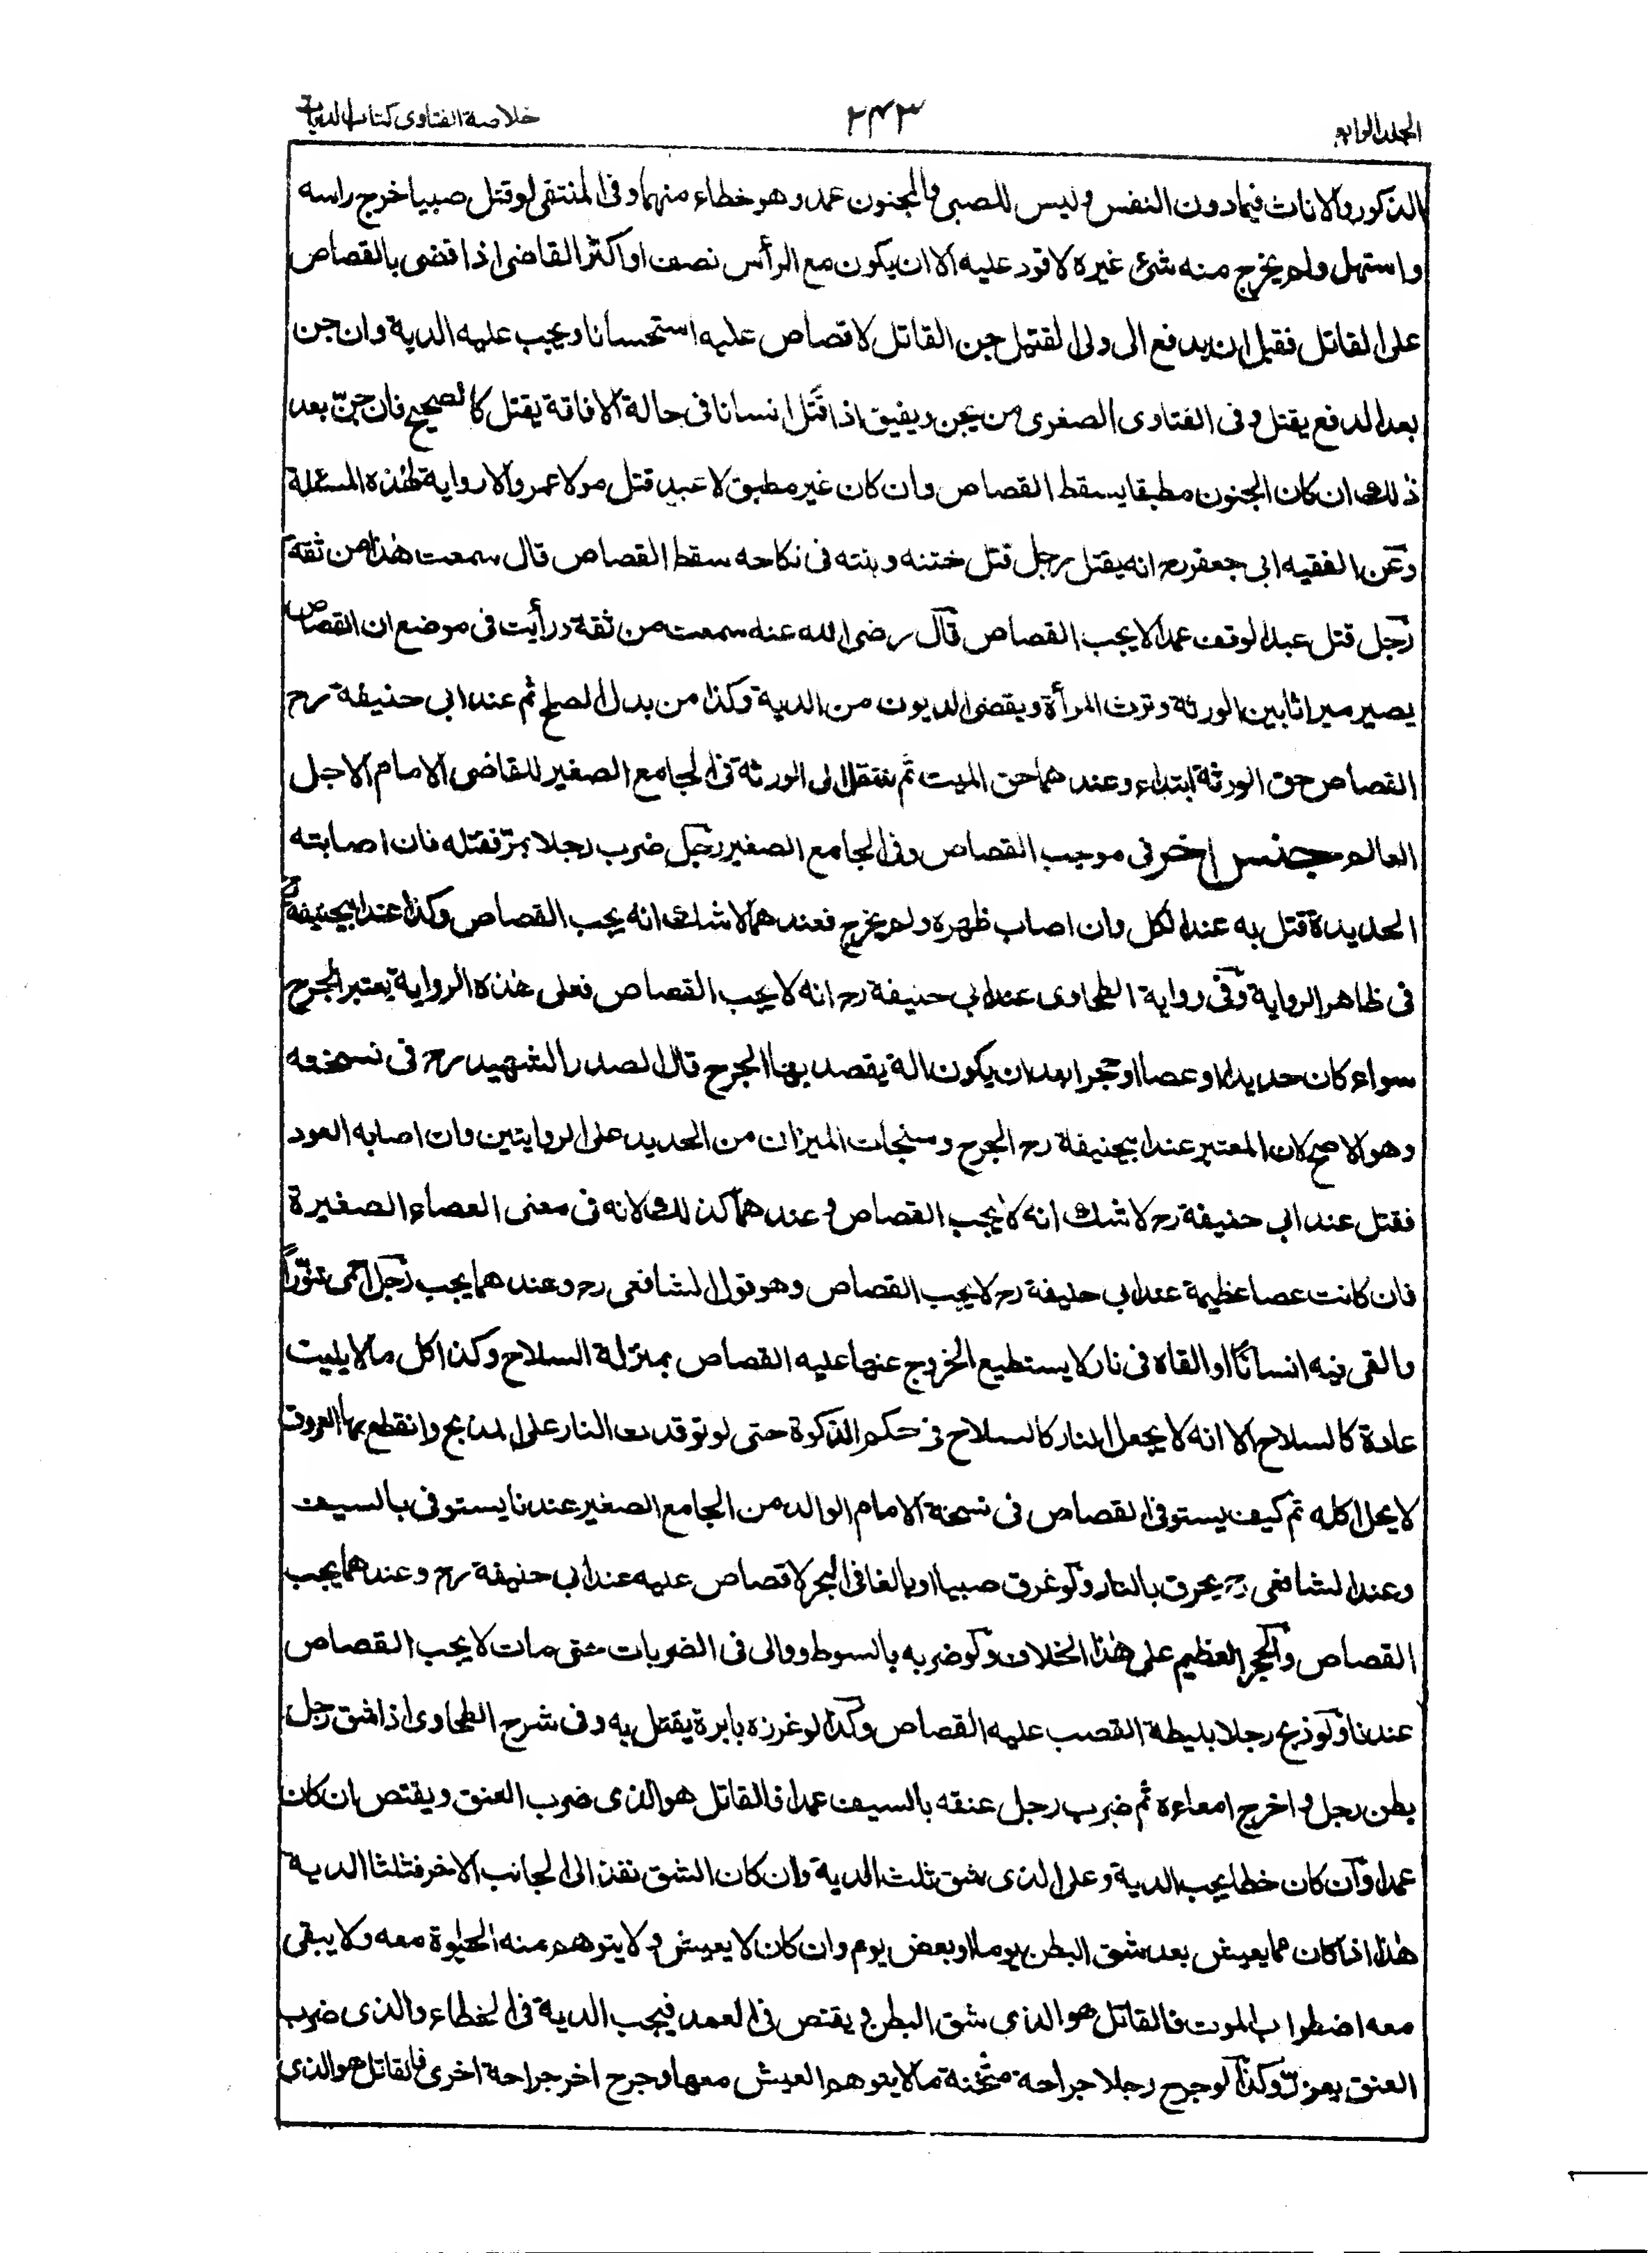 الجلد الرابع
۲۴۳
خلاصة الفتاوى كتاب الديات
الذكور والاناث فيما دون النفس وليس للصبى والمجنون عمد وهو خطاء منهما وفى المنتقى لو قتل صبيا خرج راسه
واستهل ولم يخرج منه شئ غيره لا قود عليه الا ان يكون مع الرأس نصف او اكثر القاضى اذا قضى بالقصاص
على القاتل فقبل ان يدفع الى ولى القتيل جن القاتل لا قصاص عليه استحسانا ويجب عليه الدية وان جن
بعد الدفع يقتل وفى الفتاوى الصغرى من يجن ويفيق اذا قتل انسانا فى حالة الافاقة يقتل كالصحيح فان جنّ بعد
ذلك ان كان الجنون مطبقا يسقط القصاص وان كان غير مطبق لا عبد قتل مولاه عمدا لا رواية لهذه المسئلة
وعن الفقيه ابى جعفر رح انه يقتل رجل قتل ختنه وبنته فى نكاحه سقط القصاص قال سمعت هذا من ثقة
رجل قتل عبد الوقف عمدا لا يجب القصاص قال رضى الله عنه سمعت من ثقة ورأيت فى موضع ان القصاص
يصير ميراثا بين الورثة وترث المرأة ويقضى الديون من الدية وكذا من بدل الصلح ثم عند ابى حنيفة رح
القصاص حق الورثة ابتداء وعندهما حق الميت ثم ينتقل الى الورثة فى الجامع الصغير للقاضى الامام الاجل
العالم جنس اخر فى موجب القصاص وفى الجامع الصغير رجل ضرب رجلا بمرّ فقتله فان اصابته
الحديدة قتل به عند الكل وان اصاب ظهره ولم يخرج فعندهما لا شك انه يجب القصاص وكذا عند ابيحنيفة رح
فى ظاهر الرواية وفى رواية الطحاوى عند ابى حنيفة رح انه لا يجب القصاص فعلى هذه الرواية يعتبر الجرح
سواء كان حديدا او عصا او حجرا بعد ان يكون الة يقصد بها الجرح قال الصدر الشهيد رح فى نسخته
وهو الاصح لان المعتبر عند ابيحنيفة رح الجرح وسنجات الميزان من الحديد على الروايتين وان اصابه العود
فقتل عند ابى حنيفة رح لا شك انه لا يجب القصاص وعندهما كذلك لانه فى معنى العصاء الصغيرة
فان كانت عصا عظيمة عند ابى حنيفة رح لا يجب القصاص وهو قول الشافعى رح وعندهما يجب رجل احمى تنوّراً
والقى فيه انسانًا او القاه فى نار لا يستطيع الخروج عنها عليه القصاص بمنزلة السلاح وكذا كل ما لا يلبث
عادة كالسلاح الا انه لا يجعل النار كالسلاح فى حكم الذكوة حتى لو توقدت النار على المذبح وانقطع بها العروق
لا يحل اكله ثم كيف يستوفى القصاص فى نسخة الامام الوالد من الجامع الصغير عندنا يستوفى بالسيف
وعند الشافعى رح يحرق بالنار ولو غرق صبيا او بالغا فى البحر لا قصاص عليه عند ابى حنيفة رح وعندهما يجب
القصاص والحجر العظيم على هذا الخلاف ولو ضربه بالسوط ووالى فى الضربات حتى مات لا يجب القصاص
عندنا ولو ذبح رجلا بليطة القصب عليه القصاص وكذا لو غرزه بابرة يقتل به وفى شرح الطحاوى اذا شق رجل
بطن رجل واخرج امعاءه ثم ضرب رجل عنقه بالسيف عمدا فالقاتل هو الذى ضرب العنق ويقتص ان كان
عمدا وان كان خطا يجب الدية وعلى الذى شق ثلث الدية وان كان الشق نفذ الى الجانب الاخر فثلثا الدية
هذا اذا كان مما يعيش بعد شق البطن يوما او بعض يوم وان كان لا يعيش ولا يتوهم منه الحيوة معه ولا يبقى
معه اضطراب الموت فالقاتل هو الذى شق البطن ويقتص فى العمد فيجب الدية فى الخطاء والذى ضرب
العنق يعزر وكذا لو جرح رجلا جراحة مثخنة مما لا يتوهم العيش معها وجرح اخر جراحة اخرى فالقاتل هو الذى